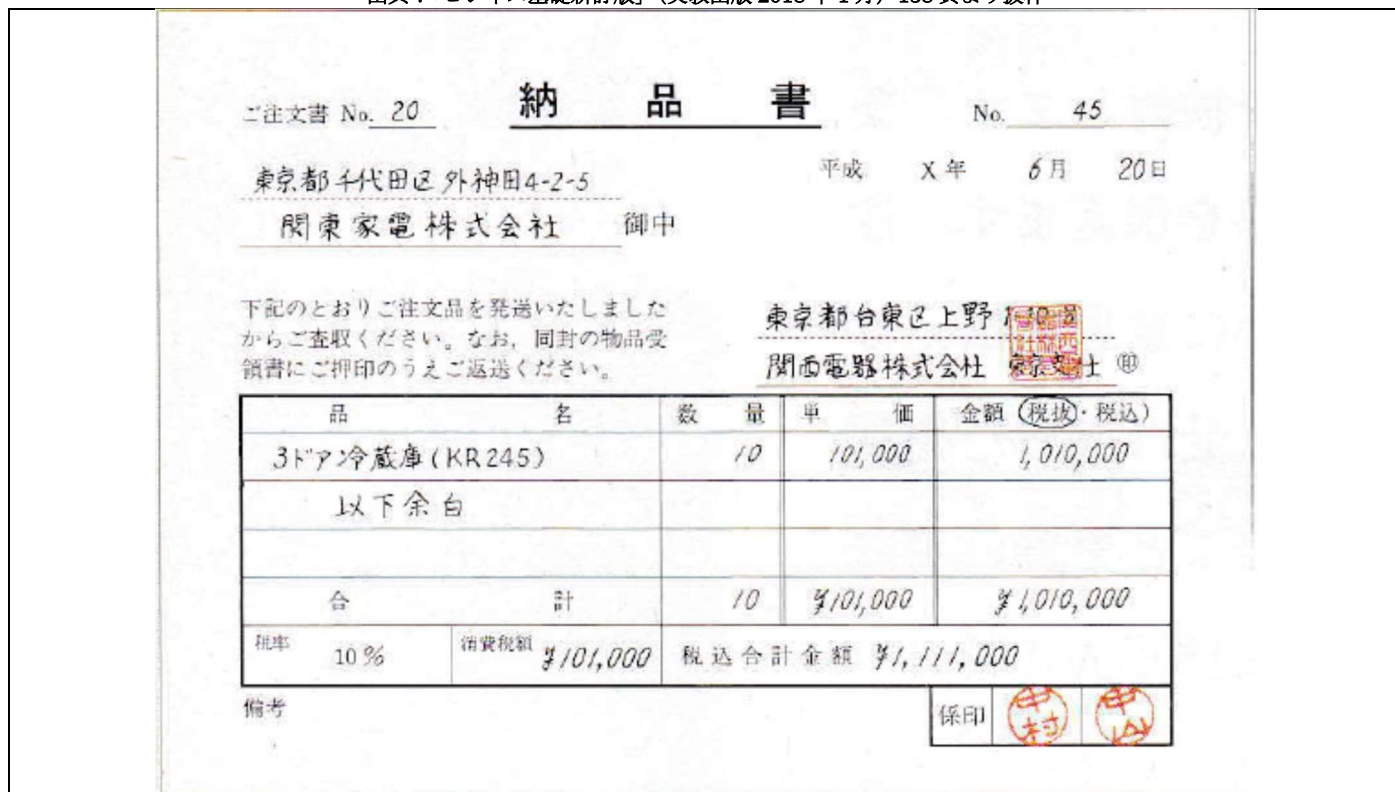 ご注文書 No. 20 納品書 No. 45
平成 X年 6月 20日
東京都千代田区外神田4-2-5
関東家電株式会社 御中
下記のとおりご注文品を発送いたしました
からご査収ください。なお，同封の物品受
領書にご押印のうえご返送ください。
東京都台東区上野
関西電器株式会社 東京支社 ㊞
品名 数量 単価 金額（税抜・税込）
3ドア冷蔵庫(KR245) 10 101,000 1,010,000
以下余白
合計 10 ¥101,000 ¥1,010,000
税率 10% 消費税額 ¥101,000 税込合計金額 ¥1,111,000
備考
係印 中村 中山